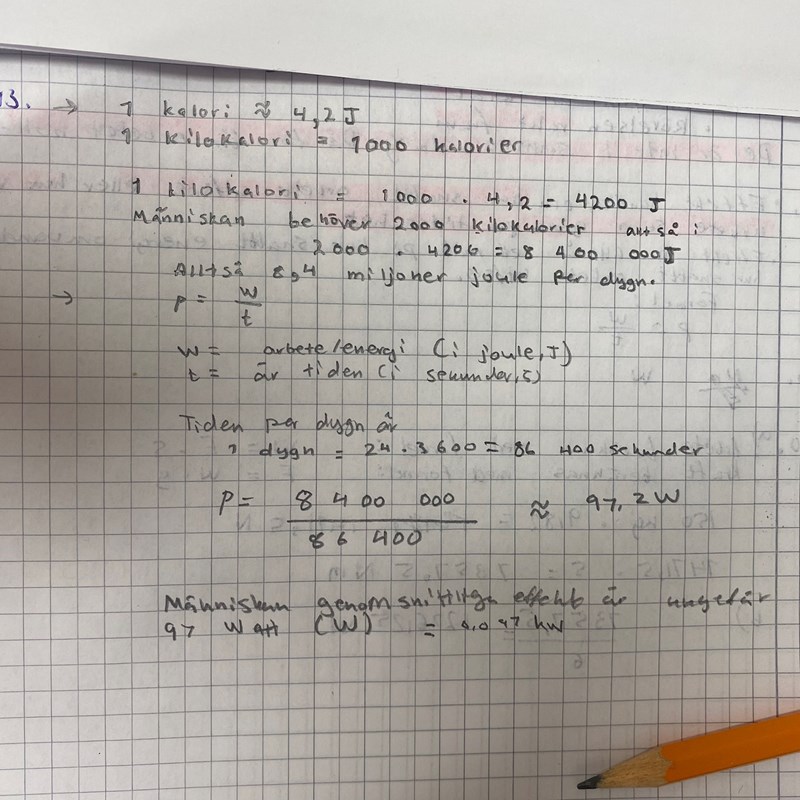 13. → 1 kalori ≈ 4,2 J
1 kilokalori = 1000 kalorier
1 kilokalori = 1000 . 4,2 = 4200 J
Människan behöver 2000 kilokalorier alltså :
2000 . 4200 = 8 400 000J
Alltså 8,4 miljoner joule per dygn.
→ P = W/t
W = arbete/energi (i joule, J)
t = är tiden (i sekunder, s)
Tiden per dygn är
1 dygn = 24 . 3600 = 86 400 sekunder
P = 8 400 000 / 86 400 ≈ 97,2 W
Människan genomsnittliga effekt är ungefär
97 Watt (W) = 0.097 kW